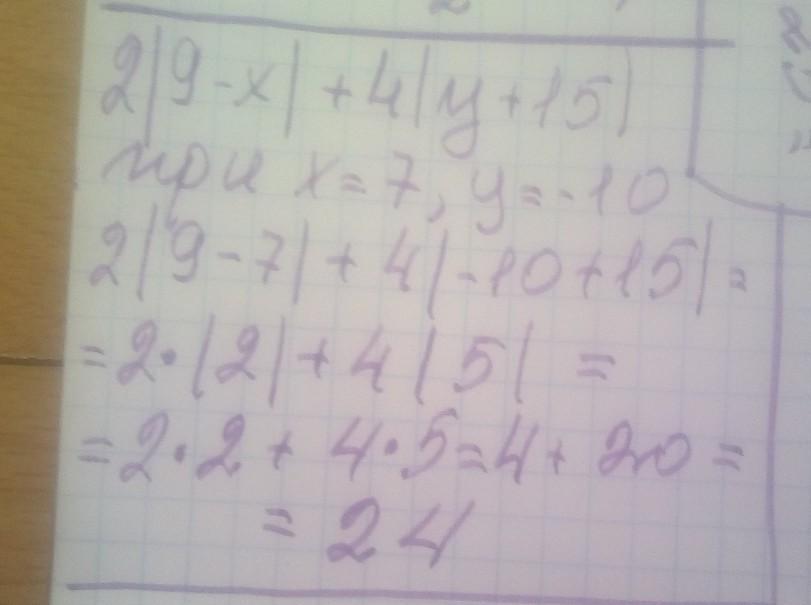 2|9-x|+4|y+15|
при x=7, y=-10
2|9-7|+4|-10+15|=
=2·|2|+4|5| =
=2·2+4·5=4+20=
=24